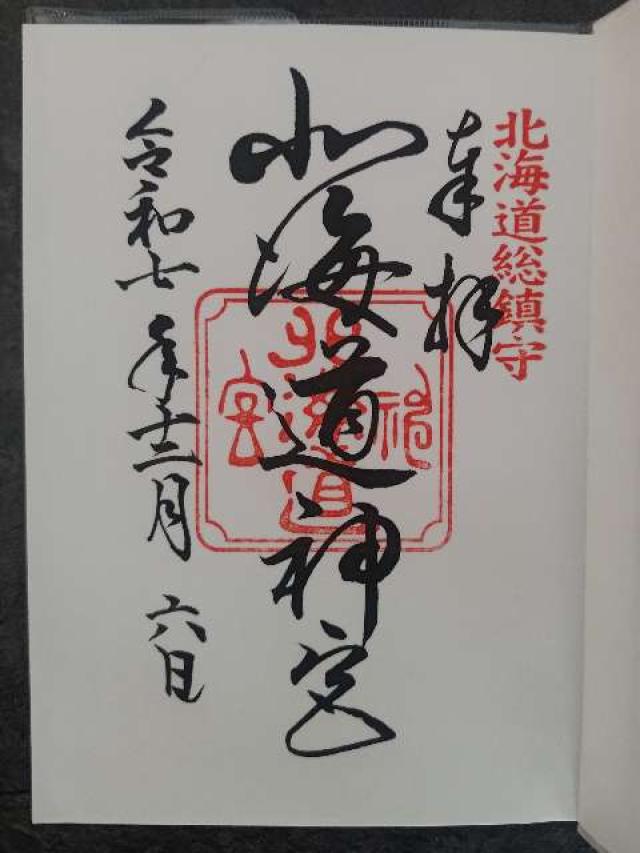 北海道総鎮守
奉拝
北海道神宮
北海道神宮
令和七年十二月六日